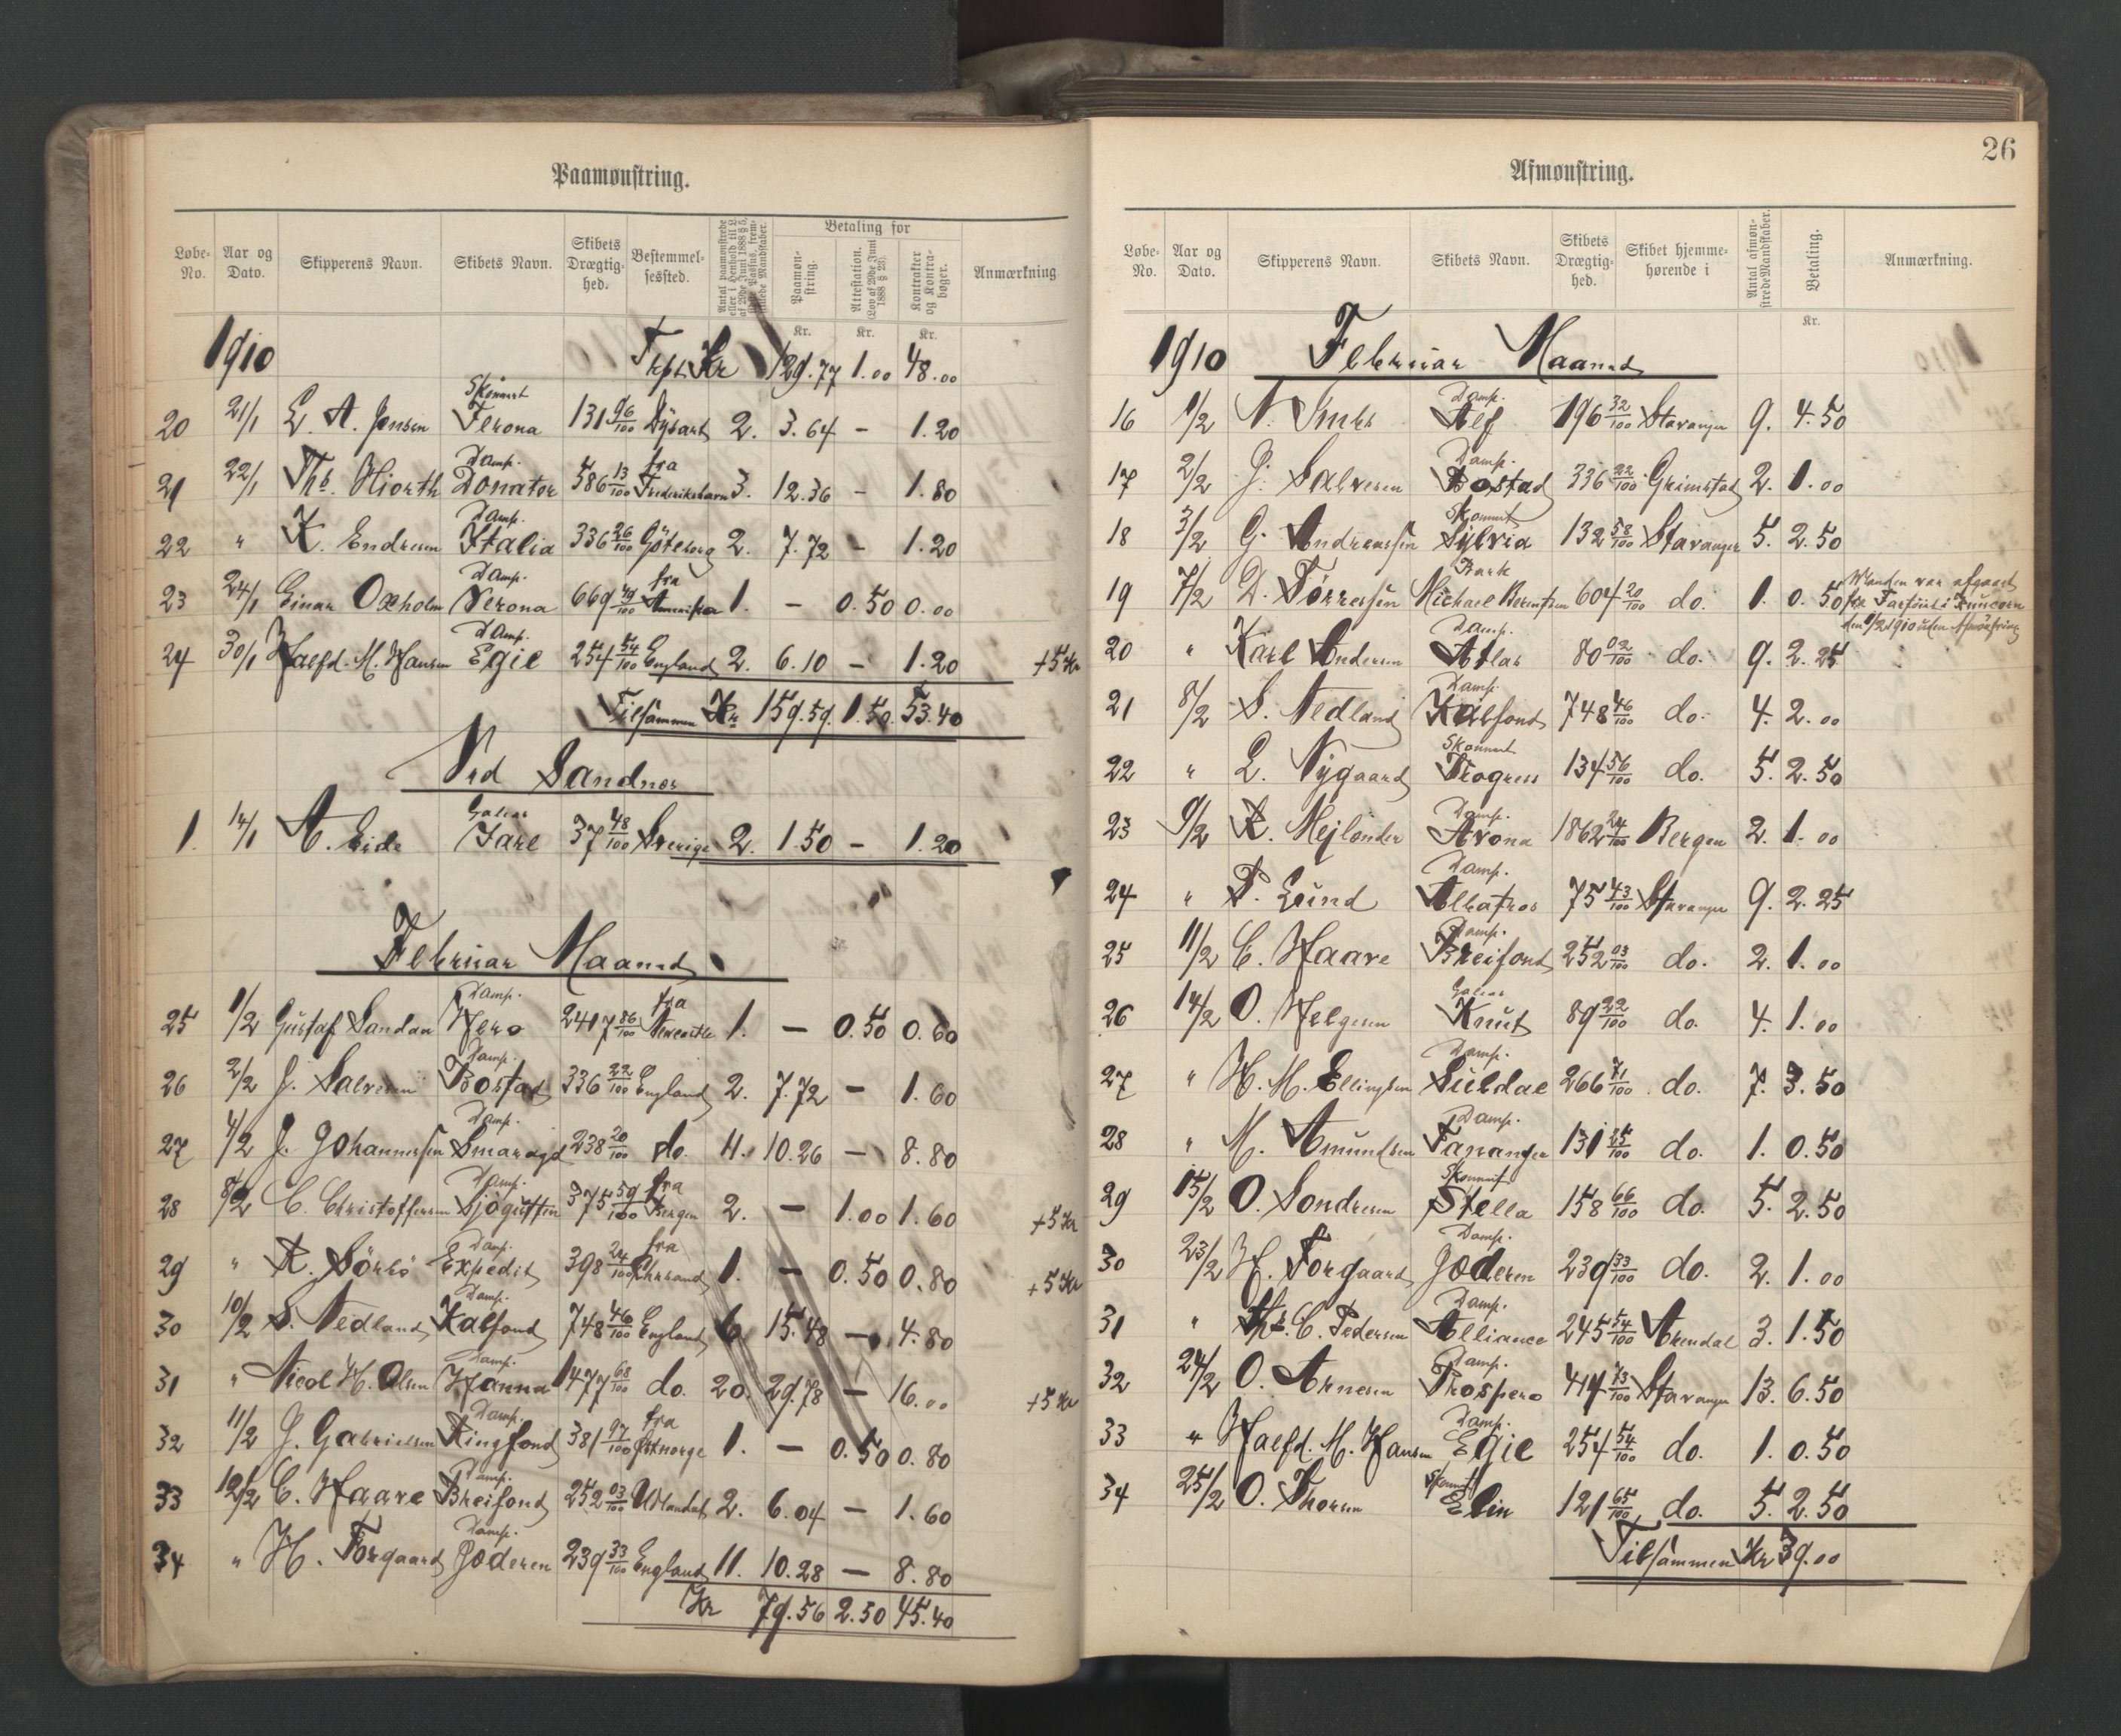 Paamønstring.
Løbe-No. Aar og Dato. Skipperens Navn. Skibets Navn. Skibets Drægtighed. Bestemmelsessted. Antal paamønstrede eller i Henhold til L. af 29de Juni 1888 § 5, Passus, fremstillede Mandskaber. Betaling for Paamønstring. Attestation. (Lov af 29de Juni 1888 § 23). Kontrakter og Kontrabøger. Anmærkning
Kr. Kr. Kr.
1910 Trspt. Kr 129.77 1.00 48.00
20 21/1 L. A. Jensen Skonnert Verona 131 96/100 Dysart 2. 3.64 — 1.20
21 22/1 Ths. Hiorth Damp. Donator 586 13/100 fra Frederikshavn 3. 12.36 — 1.80
22 " K. Endresen Damp. Italia 336 26/100 Göteborg 2. 7.72 — 1.20
23 24/1 Einar Oxholm Damp. Verona 669 49/100 fra Amerika 1. — 0.50 0.00
24 30/1 Halfd. M. Hansen Damp. Egil 254 54/100 England 2. 6.10 — 1.20 +5 Kr
Tilsammen Kr 159.59 1.50 53.40
Ved Sandnes
1. 14/1 A. Eide Galeas Jarl 37 48/100 Sverige 2. 1.50 — 1.20
Februar Maaned
25 1/2 Gustaf Sandau Damp. Hero 2417 86/100 fra Newcastle 1. — 0.50 0.60
26 2/2 J. Salvesen Damp. Bostad 336 22/100 England 2. 7.72 — 1.60
27 4/2 J. Johannessen Damp. Smaragd 238 20/100 do. 11. 10.26 — 8.80
28 8/2 C. Christoffersen Damp. Sjøgutten 375 59/100 fra Bergen 2. — 1.00 1.60 +5 Kr
29 " R. Sörbö Damp. Expedit 398 24/100 fra Chrsand 1. — 0.50 0.80 +5 Kr
30 10/2 S. Nedland Damp. Kalfond 748 46/100 England 6. 15.48 — 4.80
31 " Nicol H. Olsen Damp. Hanna 1477 68/100 do. 20. 29.78 — 16.00 +5 Kr
32 11/2 J. Gabrielsen Damp. Ringfond 381 97/100 fra Østnorge 1. — 0.50 0.80
33 12/2 C. Haave Damp. Breifond 252 03/100 Udlandet 2. 6.04 — 1.60
34 " H. Torgaard Damp. Jæderen 239 33/100 England 11. 10.28 — 8.80
Kr 79.56 2.50 45.40
26
Afmønstring.
Løbe-No. Aar og Dato. Skipperens Navn. Skibets Navn. Skibets Drægtighed. Skibet hjemmehørende i Antal afmønstrede Mandskaber. Betaling. Anmærkning.
Kr.
1910 Februar Maaned
16 1/2 N. Damp. Alf 196 32/100 Stavanger 9. 4.50
17 2/2 J. Salvesen Damp. Bostad 336 22/100 Grimstad 2. 1.00
18 3/2 G. Andreassen Skonnert Sylvia 132 58/100 Stavanger 5. 2.50
19 7/2 D. Törresen Bark Michael Berentsen 604 20/100 do. 1. 0.50 Manden var afgaaet fra Fartöiet i den 9/2 1910 uden Afmønstring
20 " Karl Andersen Damp. Atlas 80 02/100 do. 9. 2.25
21 8/2 S. Nedland Damp. Kalfond 748 46/100 do. 4. 2.00
22 " L. Nygaard Skonnert Progress 134 56/100 do. 5. 2.50
23 9/2 K. Mejlænder Damp. Arona 1862 24/100 Bergen 2. 1.00
24 " P. Lund Damp. Albatros 75 43/100 Stavanger 9. 2.25
25 11/2 C. Haave Damp. Breifond 252 03/100 do. 2. 1.00
26 14/2 O. Helgesen Galeas Knut 89 22/100 do. 4. 1.00
27 " H. M. Ellingsen Damp. Suldal 266 71/100 do. 7. 3.50
28 " M. Amundsen Damp. Fananger 131 25/100 do. 1. 0.50
29 15/2 O. Sondresen Skonnert Stella 158 66/100 do. 5. 2.50
30 23/2 H. Torgaard Damp. Jæderen 239 33/100 do. 2. 1.00
31 " Chr. C. Pedersen Damp. Alliance 245 54/100 Arendal 3. 1.50
32 24/2 O. Arnesen Damp. Prospero 414 73/100 Stavanger 13. 6.50
33 " Halfd. M. Hansen Damp. Egil 254 54/100 do. 1. 0.50
34 25/2 O. Thorsen Skonnert Elin 121 65/100 do. 5. 2.50
Tilsammen Kr 39.00